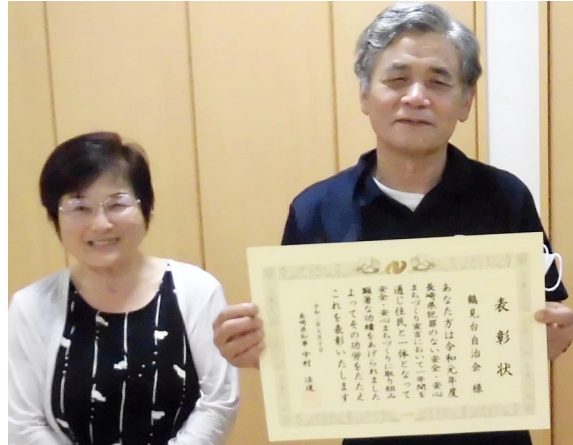 表彰状
鶴見台自治会 様
あなた方は令和元年度
長崎県犯罪のない安全・安心
まちづくり宣言において一年間を
通じ住民と一体となって
安全・安心まちづくりに取り組み
顕著な功績をあげられました
よってその功労をたたえ
これを表彰いたします
長崎県知事 中村 法道